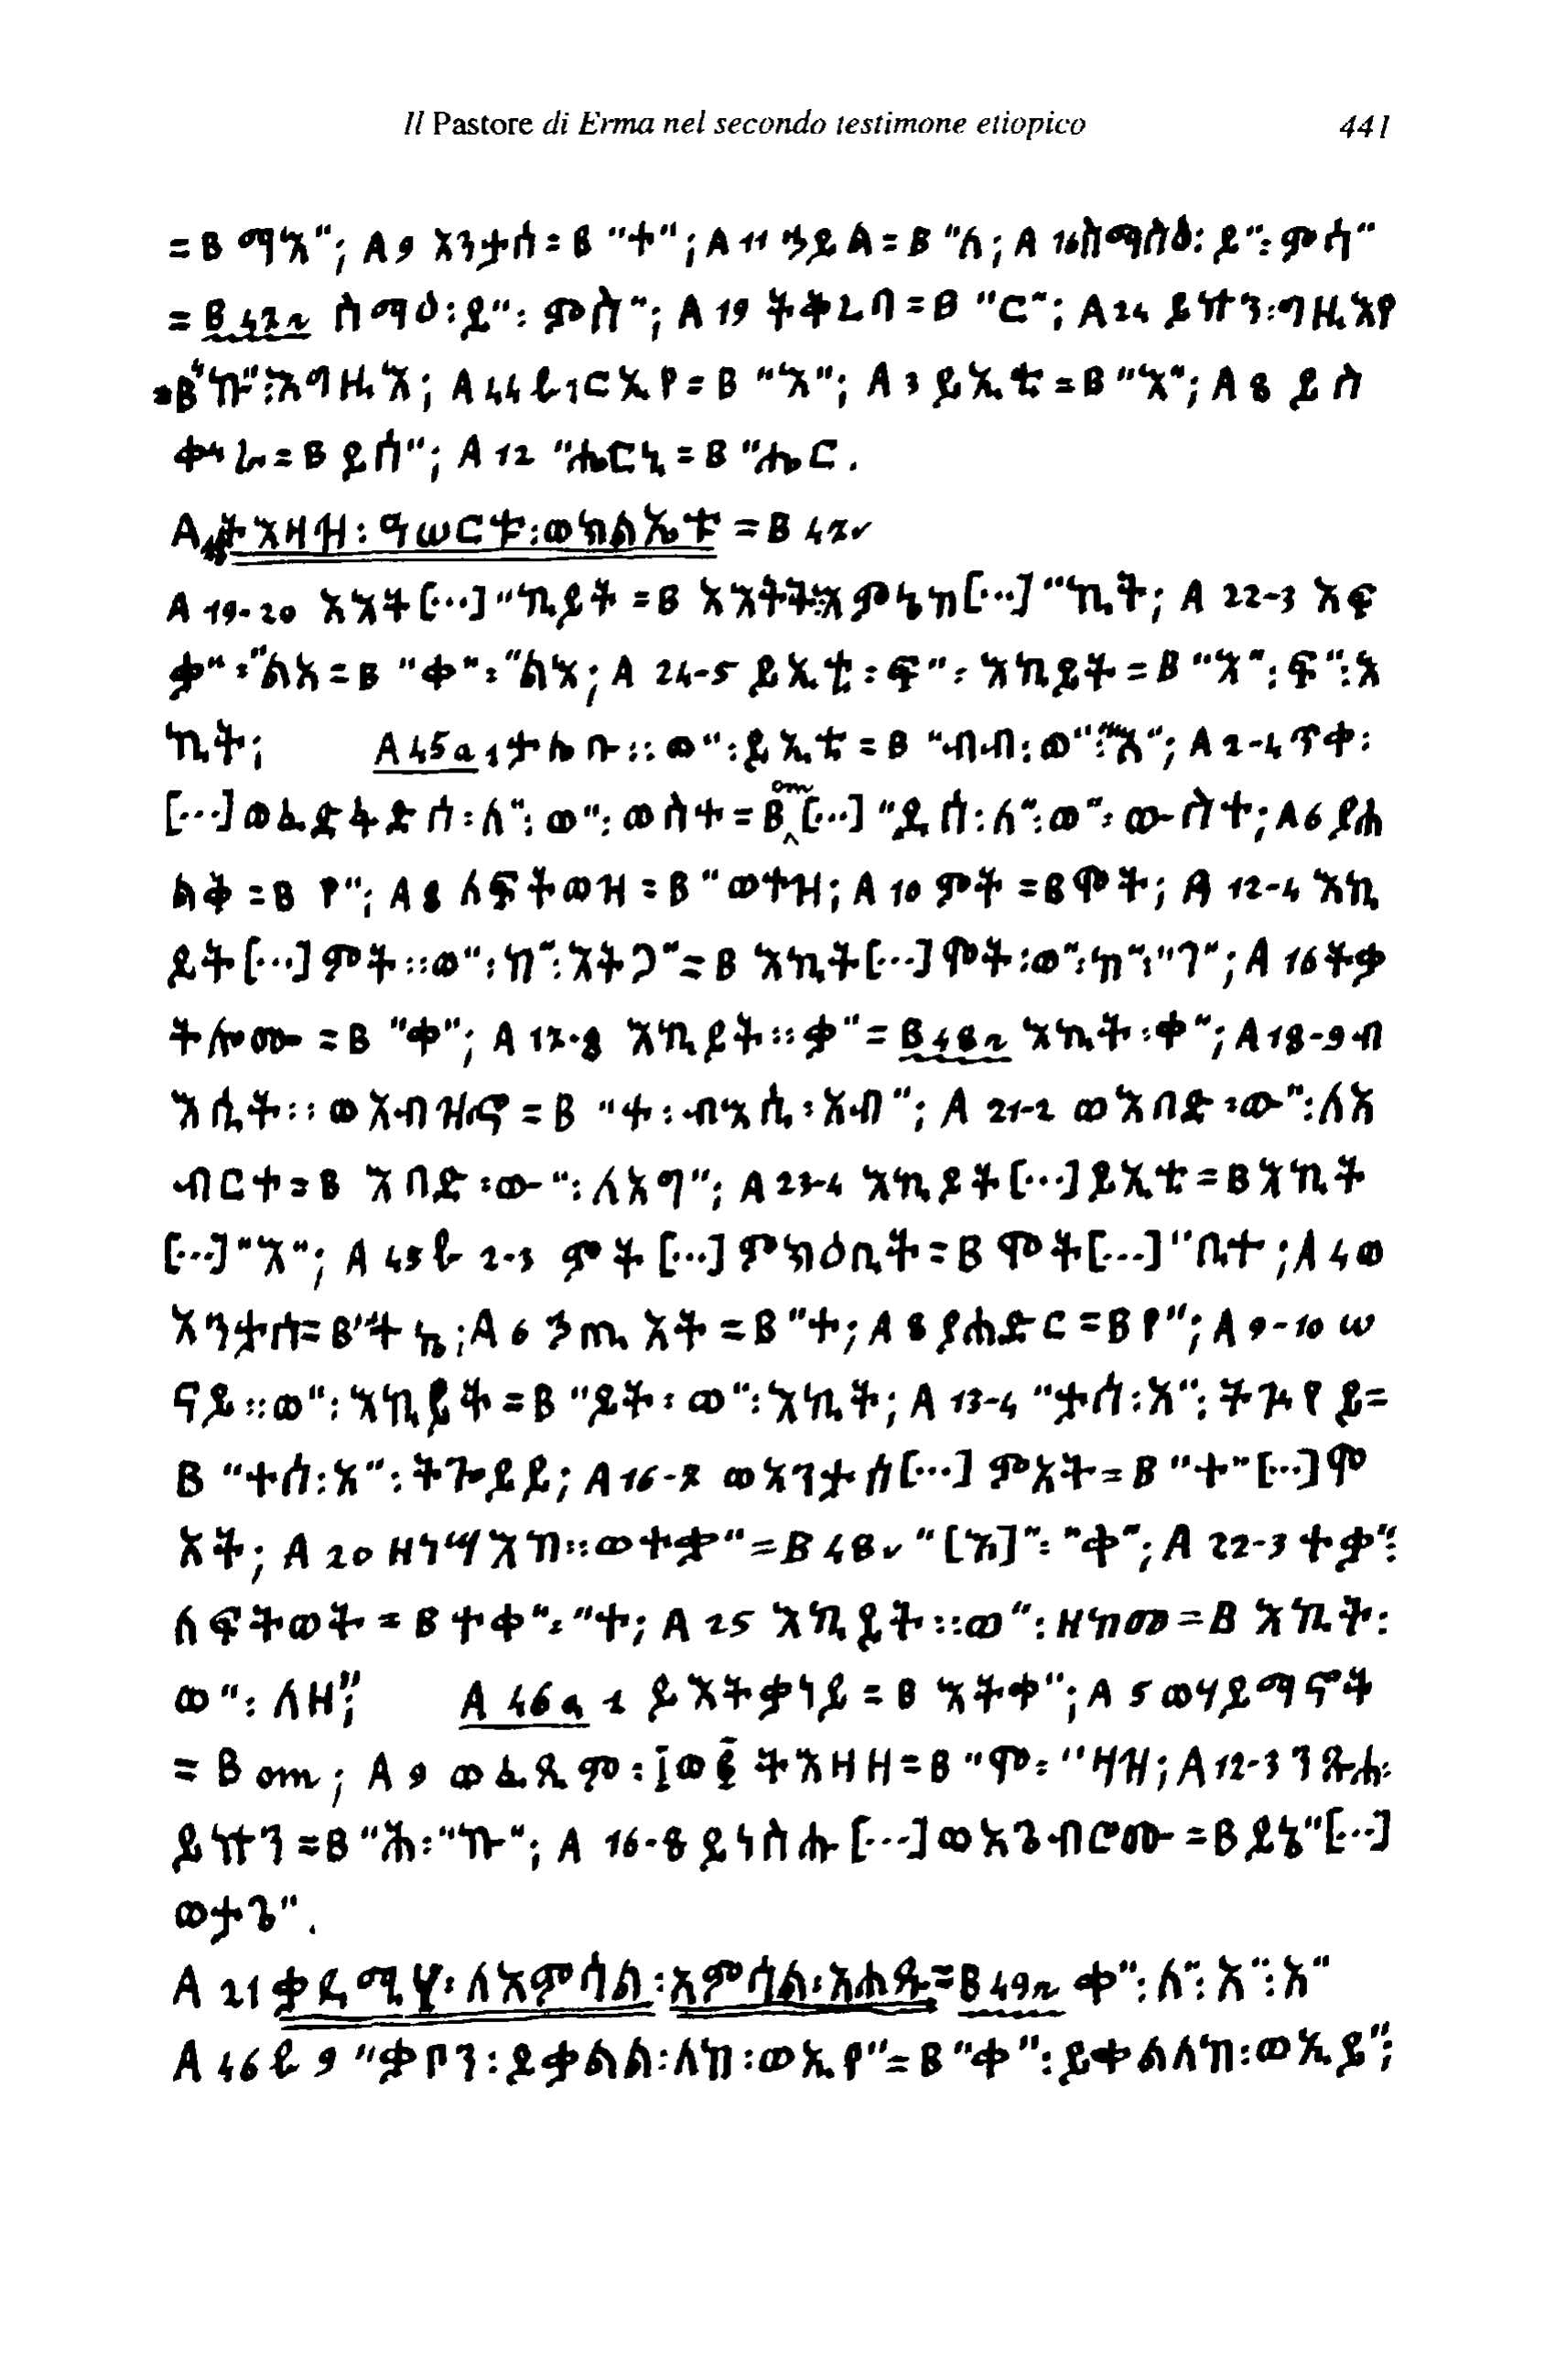 Il Pastore di Erma nel secondo testimone etiopico 441
= B ማእ"; A 9 እንታሰ = B "ተ"; A 11 ኀይል = B "ለ; A 16 ስማስዕ: ይ": ምሳ"
= B 47r ስማዕ:ይ": ምስ"; A 19 ትቅረብ = B "ር"; A 24 ይኩን:ግዚአየ
= B "ኩ":እግዚእ; A 44b 1 ርኢየ = B "እ"; A 3 ይኢቲ = B "እ"; A 8 ይስ
ቀራ = B ይሰ"; A 12 "ሔርኒ = B "ሖር.
A ትእዛዝ: ዓሠርቱ:ወክልኤቱ = B 47v
A 19-20 አእት[...]"ኪይት = B [...]"ኪት; A 22-3 አፍ
ቃ":"ልአ = B "ቀ":"ልእ; A 24-5 ይኢቲ: ፍ": እኪይት = B "እ": ፍ":እ
ኪት; A 45a 1 :: ወ":ይኢቲ = B "ብብ:ወ":"እ"; A 2-4 ጥቀ:
[...] ለ": ወ": ወስተ = B om [...] "ዲሰ:ለ":ወ": ውስተ; A 6 ያሐ
ልቅ = B የ"; A 8 ለፍትወዝ = B "ወተዝ; A 10 ምት = B ሞት; A 12-4 እኪ
ይት[...] ምት::ወ":ከ":እት = B እኪት[...] ሞት:ወ":ከ":"ገ"; A 16 ትቃ
ትሎሙ = B "ቀ"; A 17-8 እኪይት::ቃ" = B 48r እኪት:ቀ"; A 18-9 ብ
እሲት::ወአብዝኖ = B "ቱ:ብእሲ:አብ"; A 21-2 ወእበድ:ው":ለአ
ብርተ = B እበድ:ው":ለአግ"; A 23-4 እኪይት[...] ይኢቲ = B እኪት
[...]"እ"; A 45b 2-3 ምት[...] ምክዕቢት = B ሞት[...]"ቢተ; A 4 ወ
እንታሰ = B "ተ ኬ; A 6 ኀጢአት = B "ተ; A 8 ያሐድር = B የ"; A 9-10 ሠ
ናይ::ወ": እኪይት = B "ይት: ወ":እኪት; A 13-4 "ታሰ:አ": ትጐየይ =
B "ተሰ:አ": ትጐይይ; A 16-7 ወእንታሰ[...] ምአት = B "ተ"[...] ሞ
አት; A 20 ዘነሣእከ::ወተቃ" = B 48v "[አ]": "ቀ"; A 22-3 ተቃ":
ለፍትወት = B ተቀ":"ተ; A 25 እኪይት::ወ": ዘከመ = B እኪት:
ወ": ለዘ"; A 46a 1 ይእትቃነይ = B እትቀ"; A 5 ወሃይማኖት
= B om; A 9 ወፈጸም:፲ወ፪ ትእዘዘ = B "ሞ: "ዛዝ; A 12-3 ንጹሐ:
ይኩን = B "ሕ:"ኩ"; A 16-8 ይነስሑ[...] ወእጌብሮሙ = B ይኔ"[...]
ወታጌ".
A 21 ቃዳሚሃ: ለአምሳል:አምሳል:አሐዱ = B 49r ቀ": ለ": አ": አ"
A 46b 9 "ቃበን: ይቃልል:ለከ:ወኢየ" = B "ቀ": ይቀልለከ:ወኢይ";